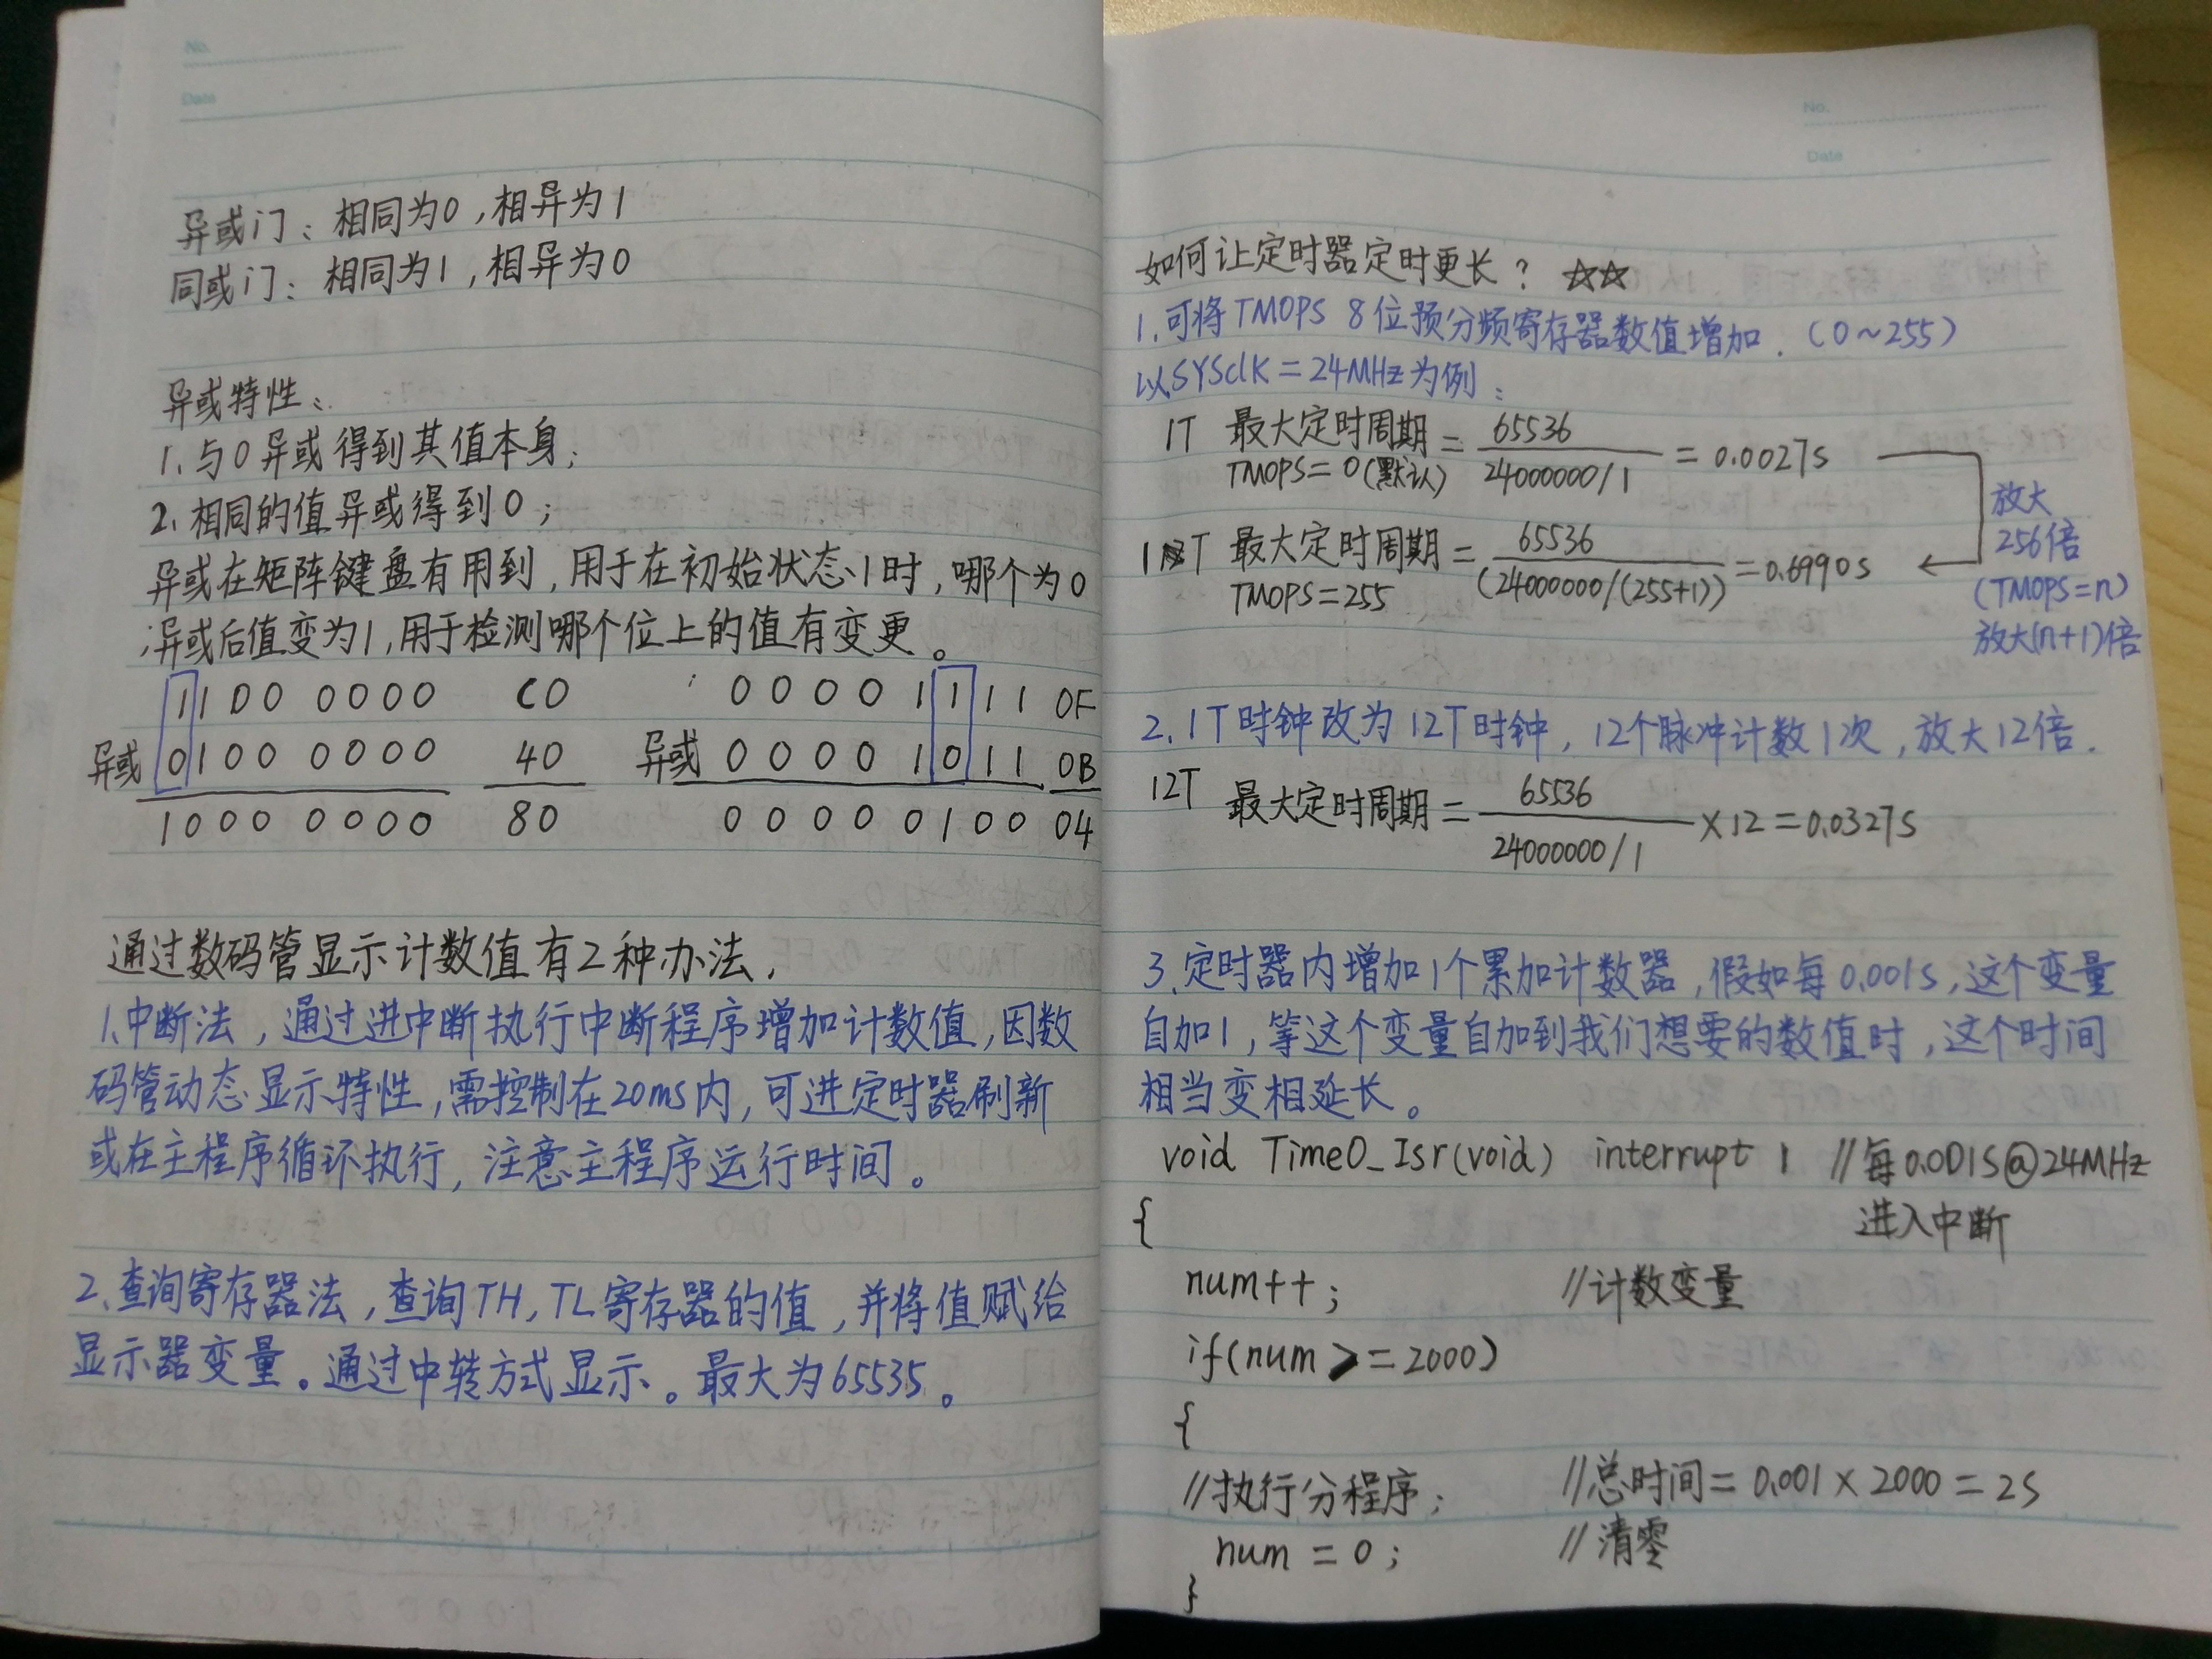 No.
Date
异或门：相同为0，相异为1
同或门：相同为1，相异为0
异或特性：
1、与0异或得到其值本身；
2、相同的值异或得到0；
异或在矩阵键盘有用到，用于在初始状态1时，哪个为0
异或后值变为1，用于检测哪个位上的值有变更。
1100 0000 C0
异或 0100 0000 40
1000 0000 80
0000 1111 0F
异或 0000 1011 0B
0000 0100 04
通过数码管显示计数值有2种办法，
1、中断法，通过进中断执行中断程序增加计数值，因数
码管动态显示特性，需控制在20ms内，可进定时器刷新
或在主程序循环执行，注意主程序运行时间。
2、查询寄存器法，查询TH，TL寄存器的值，并将值赋给
显示器变量。通过中转方式显示。最大为65535。
No.
Date
如何让定时器定时更长？ ☆☆
1、可将TM0PS 8位预分频寄存器数值增加．（0～255）
以SYSclK=24MHz为例：
1T 最大定时周期 = 65536 / (24000000/1) = 0.0027s
TM0PS=0(默认)
1T 最大定时周期 = 65536 / (24000000/(255+1)) = 0.6990s
TM0PS=255
放大
256倍
(TM0PS=n)
放大(n+1)倍
2、1T时钟改为12T时钟，12个脉冲计数1次，放大12倍．
12T 最大定时周期 = 65536 / (24000000/1) ×12=0.0327s
3、定时器内增加1个累加计数器，假如每0.001s，这个变量
自加1，等这个变量自加到我们想要的数值时，这个时间
相当变相延长。
void Time0_Isr(void) interrupt 1 //每0.001S@24MHz
进入中断
{
num++; //计数变量
if(num>=2000)
{
//执行分程序； //总时间=0.001×2000=2S
num=0; //清零
}